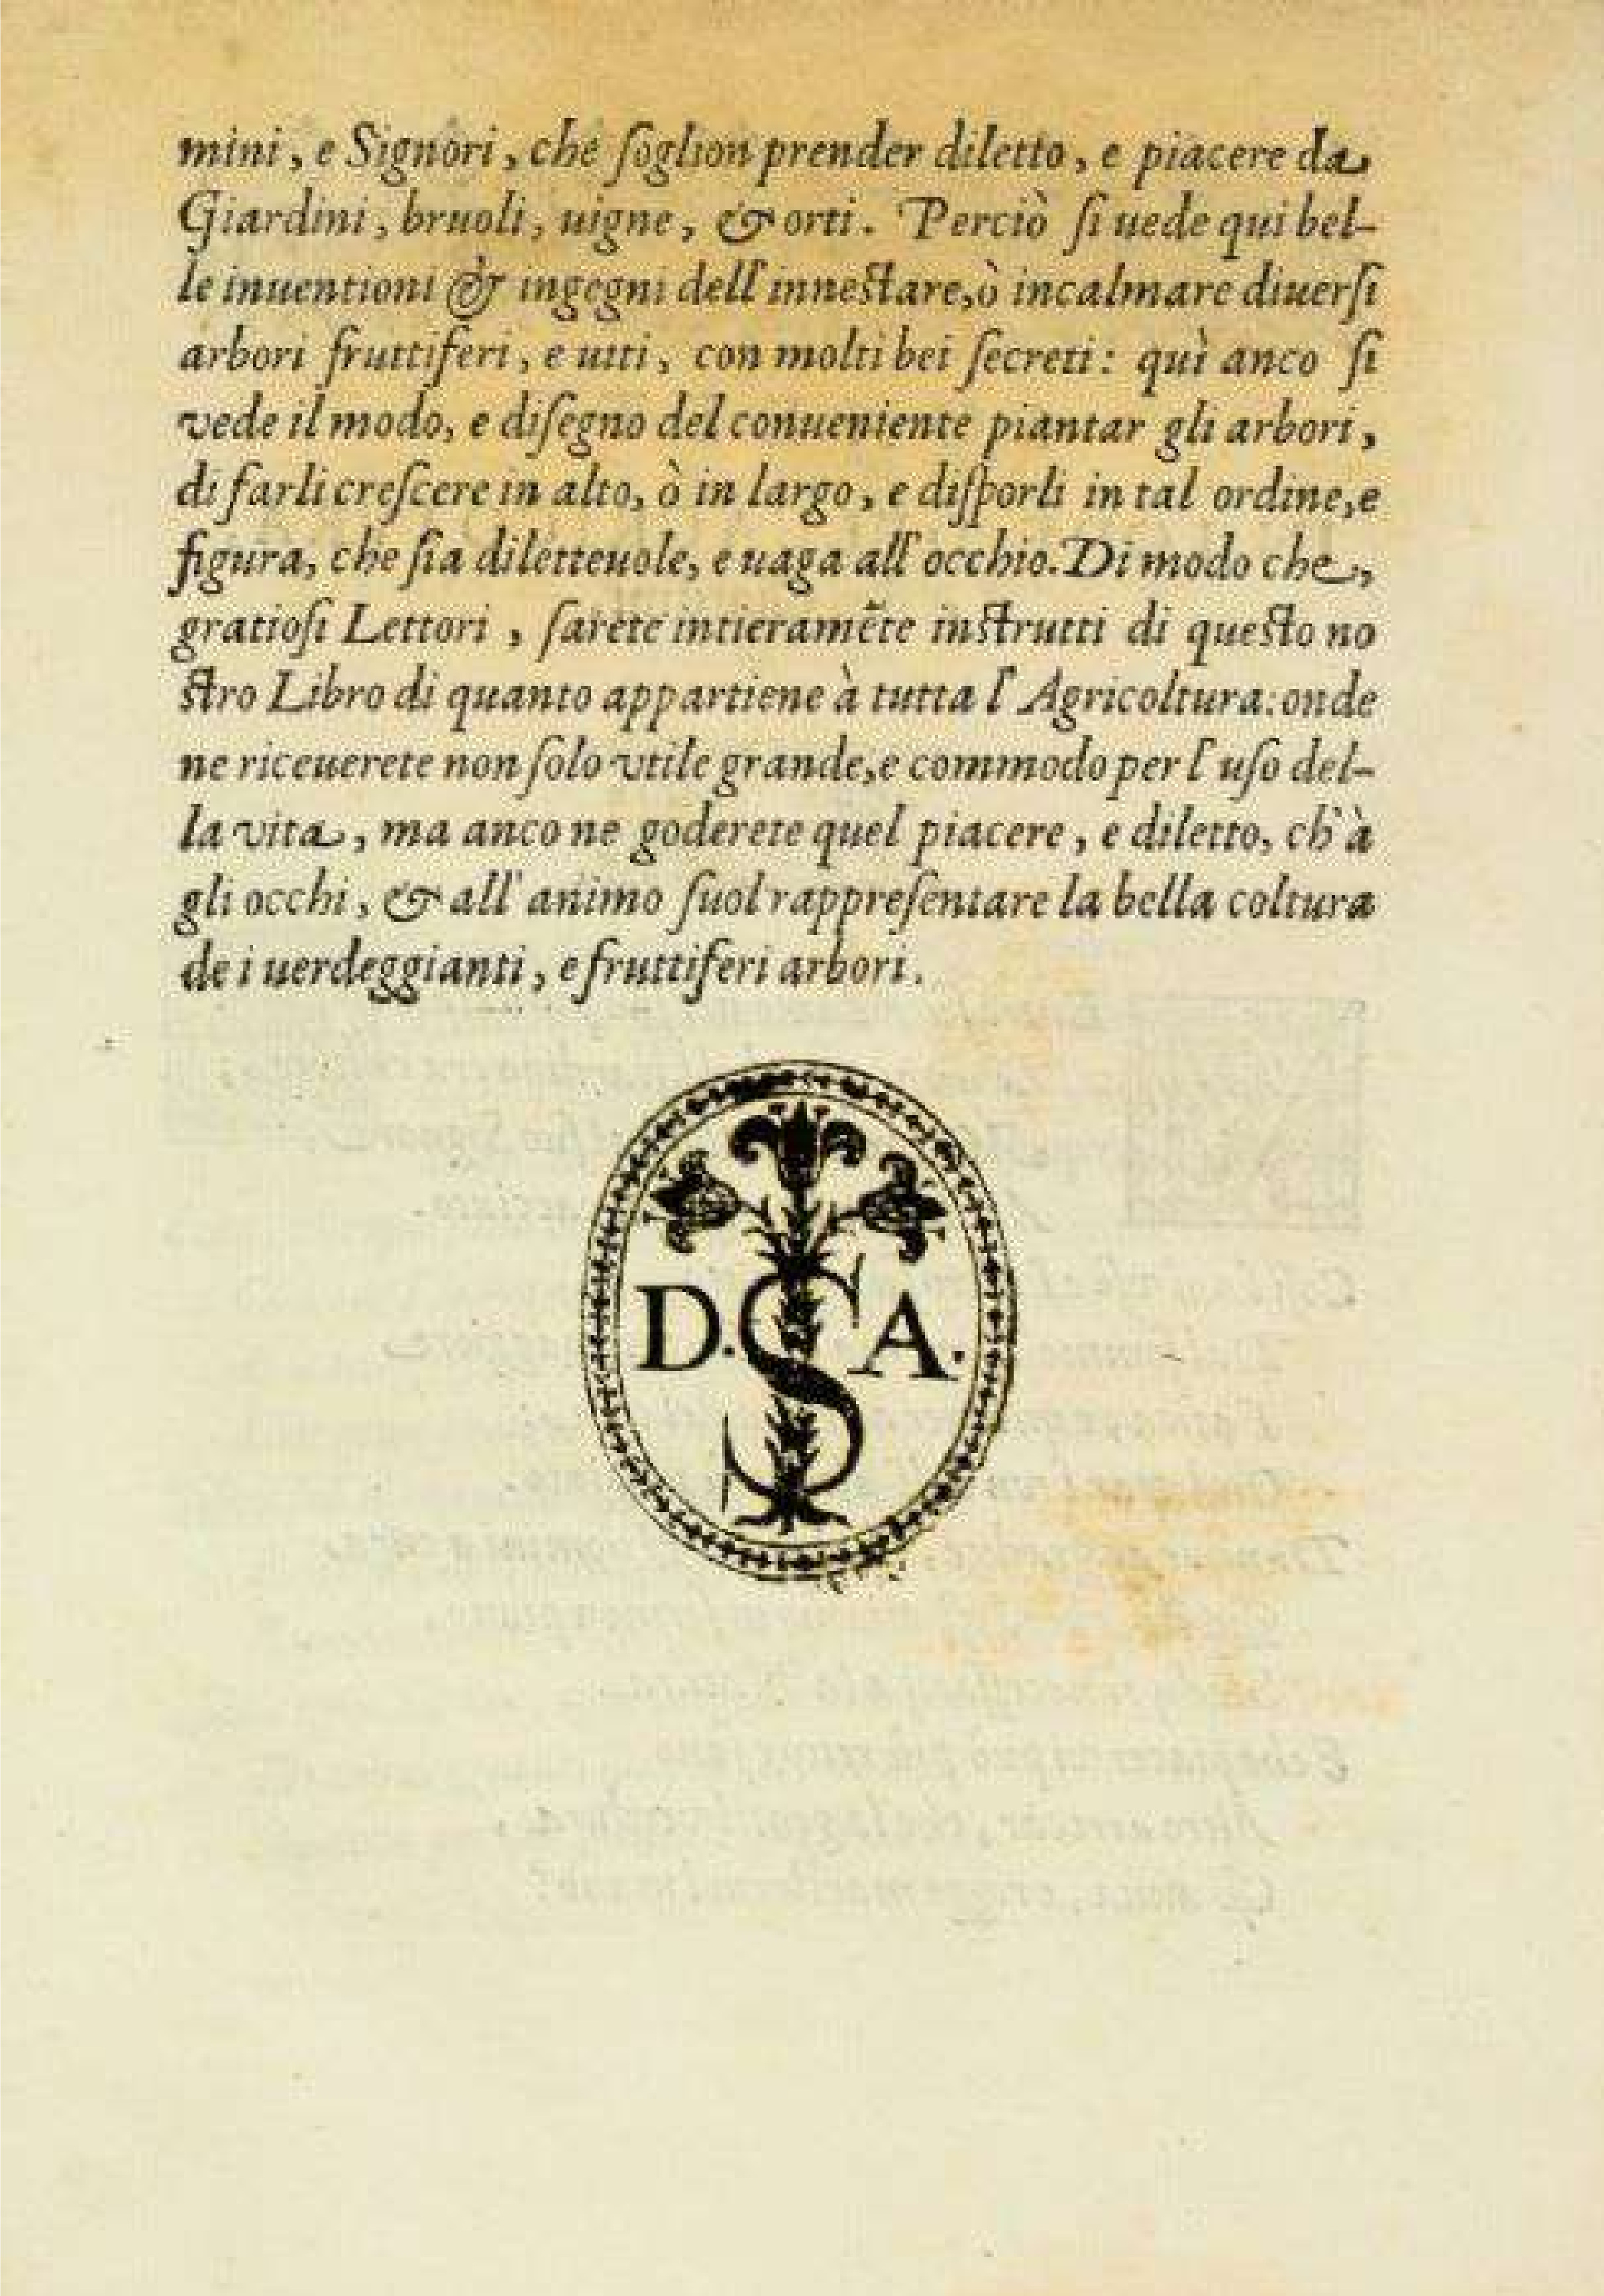 mini, e Signori, che ſoglion prender diletto, e piacere da
Giardini, bruoli, uigne, & orti. Perciò ſi uede qui bel-
le inuentioni & ingegni dell'innestare, ò incalmare diuerſi
arbori fruttiferi, e uiti, con molti bei ſecreti: quì anco ſi
vede il modo, e diſegno del conueniente piantar gli arbori,
di farli creſcere in alto, ò in largo, e diſporli in tal ordine, e
figura, che ſia diletteuole, e uaga all'occhio. Di modo che,
gratioſi Lettori, ſarete intieramẽte instrutti di questo no
stro Libro di quanto appartiene à tutta l'Agricoltura: onde
ne riceuerete non ſolo vtile grande, e commodo per l'uſo del-
la vita, ma anco ne goderete quel piacere, e diletto, ch'à
gli occhi, & all'animo ſuol rappreſentare la bella coltura
de i uerdeggianti, e fruttiferi arbori.
D. S A.